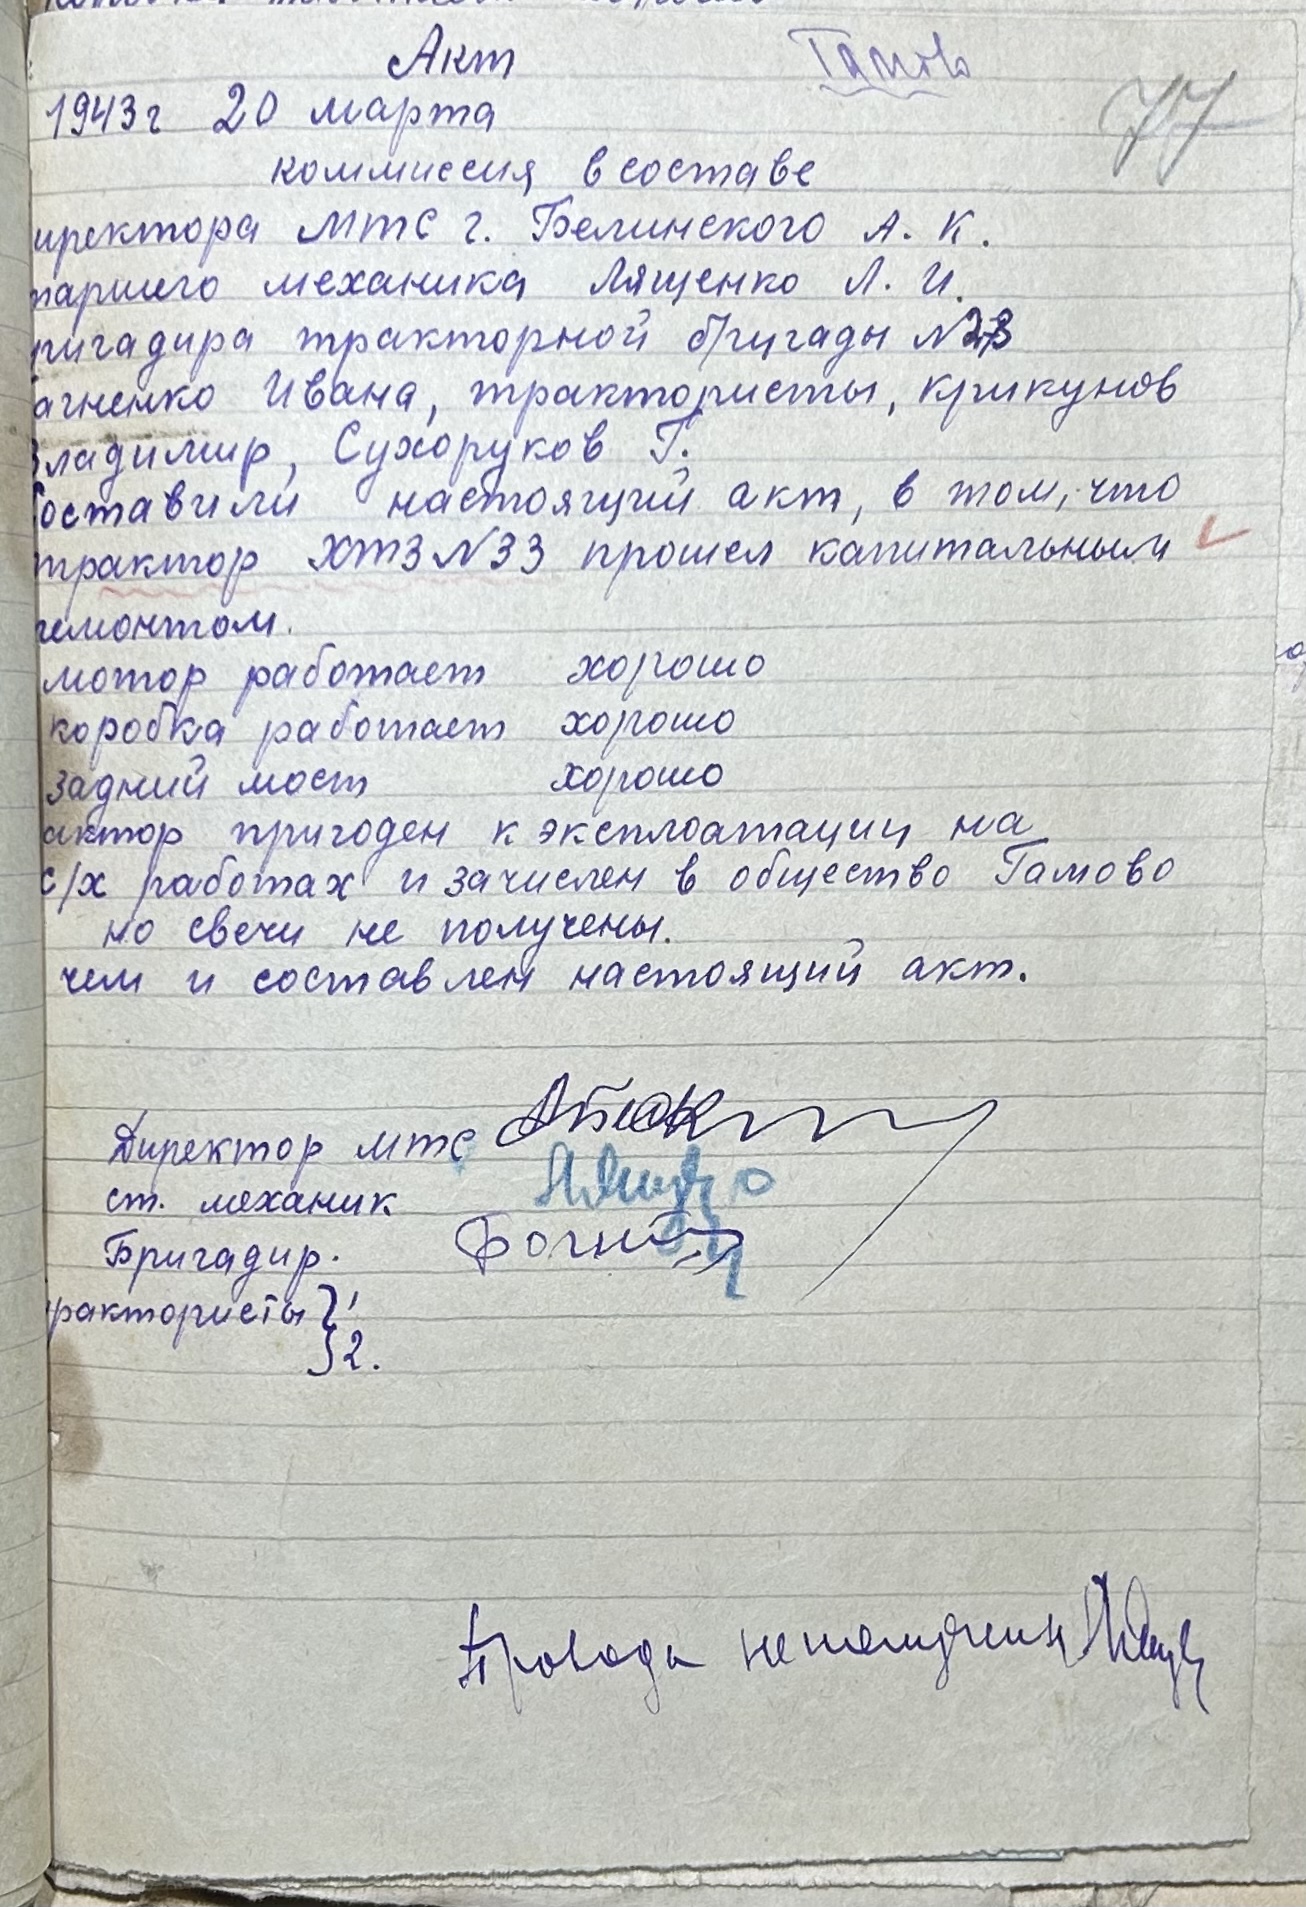 Акт
Гамово
77
1943г 20 марта
коммиссия в составе
иректора МТС г. Белинского А. К.
таршего механика Лященко Л. И.
ригадира тракторной бригады №
агненко Ивана, трактористы, крикунов
владимир, Сухоруков Г.
составили настоящий акт, в том, что
трактор ХТЗ №33 прошел капитальным
ремонтом.
мотор работает хорошо
коробка работает хорошо
задний мост хорошо
актор пригоден к эксплоатации на
с/х работах и зачислен в общество Гамово
но свечи не получены.
чем и составлен настоящий акт.
Директор МТС
ст. механик
Бригадир.
рактористы } 1
} 2.
Провода